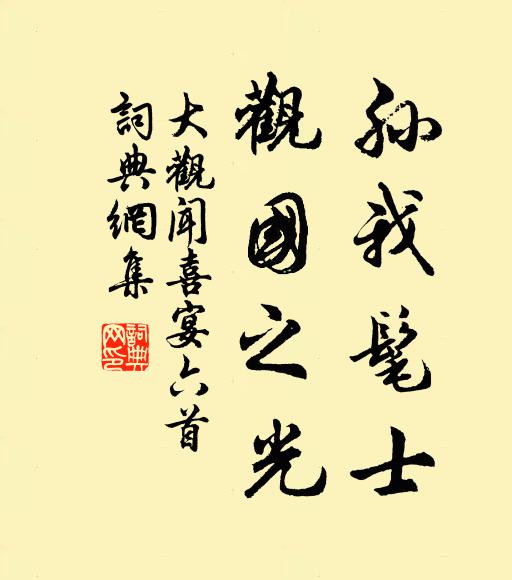 我髦士
觀國之光
大觀闻喜宴六首
詞典網集
詞典网印